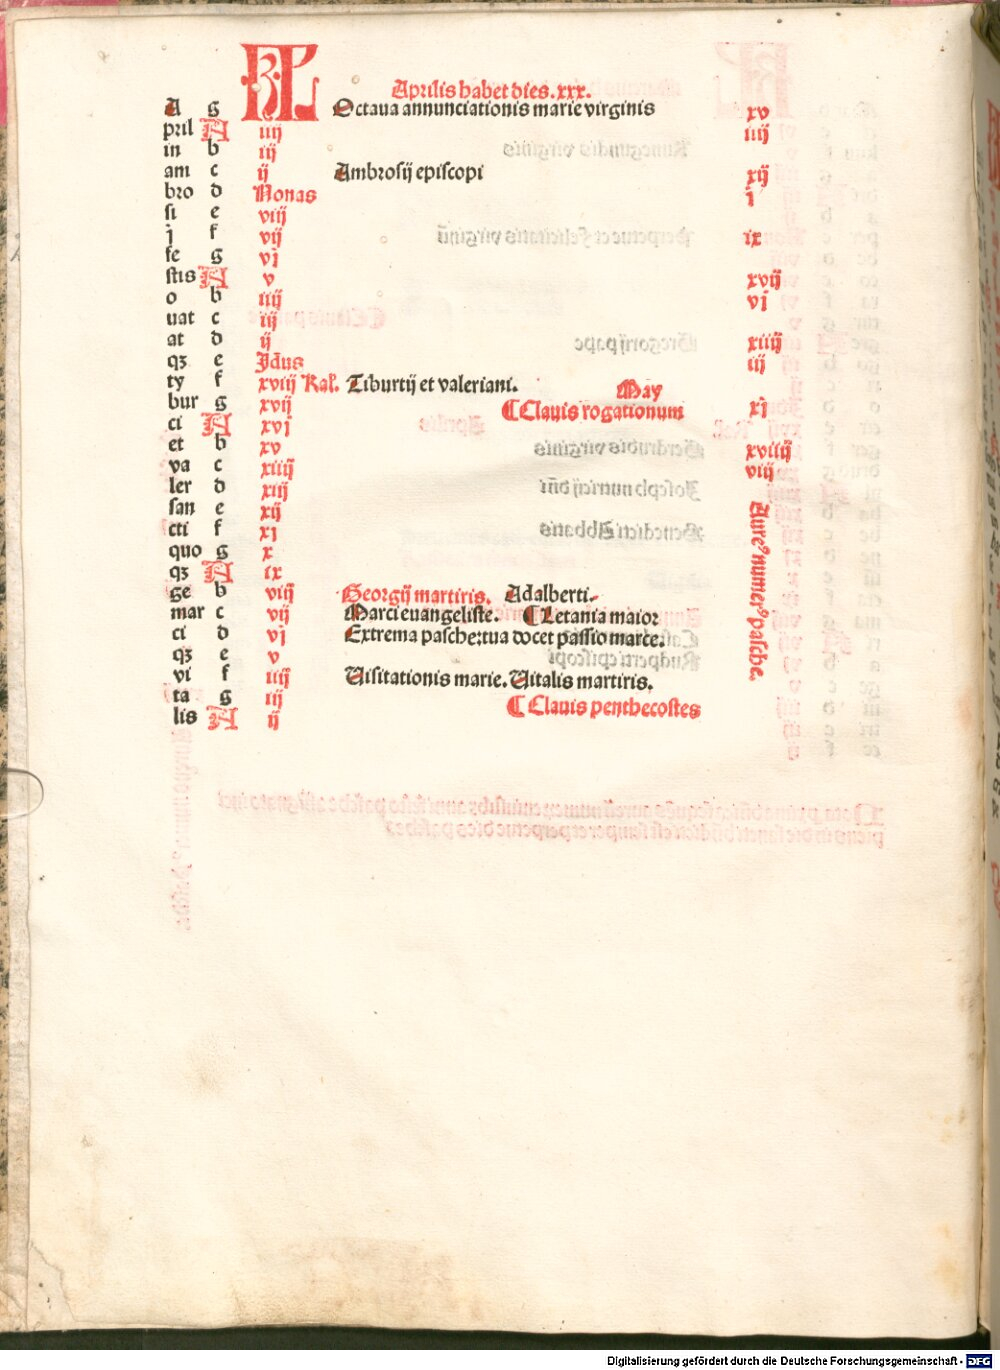 KL
Aprilis habet dies.xxx.
A g Octaua annunciationis marie virginis xv
pril A iiij iiij
in b iij
am c ij Ambrosij episcopi xij
bro d Nonas i
si e viij
j f vij ix
fe g vj
stis A v xvij
o b iiij vj
uat c iij
at d ij xiiij
qȝ e Jdus iij
ty f xviij Kal. Tiburtij et valeriani. May
bur g xvij ¶Clauis rogationum xj
ci A xvj
et b xv xviiij
va c xiiij viij
ler d xiij
san e xij
cti f xj
quo g x
qȝ A ix
ge b viij Georgij martiris. Adalberti.
mar c vij Marci euangeliste. ¶Letania maior
ci d vj Extrema paschertua docet passio marce.
qȝ e v
vi f iiij Visitationis marie. Vitalis martiris.
ta g iij ¶Clauis penthecostes
lis A ij
Aureꝰ numerꝰ pasche.
Digitalisierung gefördert durch die Deutsche Forschungsgemeinschaft - DFG